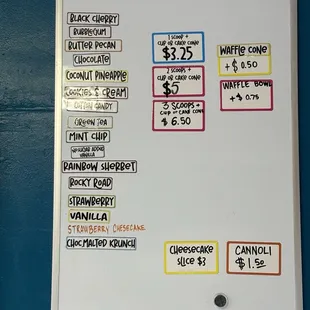 BLACK CHERRY
BUBBLEGUM
BUTTER PECAN
CHOCOLATE
COCONUT PINEAPPLE
COOKIES & CREAM
COTTON CANDY
GREEN TEA
MINT CHIP
NO SUGAR ADDED
VANILLA
RAINBOW SHERBET
ROCKY ROAD
STRAWBERRY
VANILLA
STRAWBERRY CHESECAKE
CHOC MALTED KRUNCH
1 SCOOP +
CUP OR CAKE CONE
$3.25
2 SCOOPS +
CUP OR CAKE CONE
$5
3 SCOOPS +
CUP OR CAKE CONE
$6.50
WAFFLE CONE
+ $0.50
WAFFLE BOWL
+ $0.75
CHEESECAKE
SLICE $3
CANNOLI
$1.50